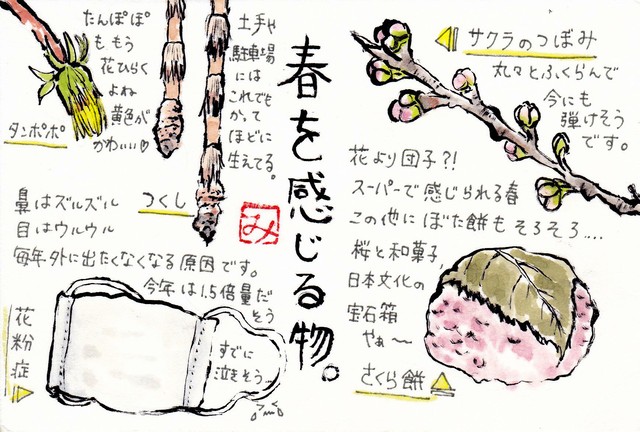 春を感じる物。
み
サクラのつぼみ
丸々とふくらんで
今にも
弾けそう
です。
土手や
駐車場
には
これでも
かって
ほどに
生えてる。
つくし
たんぽぽ
ももう
花ひらく
よね
黄色が
かわいい♡
タンポポ
花より団子?!
スーパーで感じられる春
この他にぼた餅もそろそろ....
桜と和菓子、
日本文化の
宝石箱
やぁ〜
さくら餅
鼻はズルズル
目はウルウル
毎年外に出たくなくなる原因です。
今年は1.5倍量だ
そう
すでに
泣きそう...
花粉症